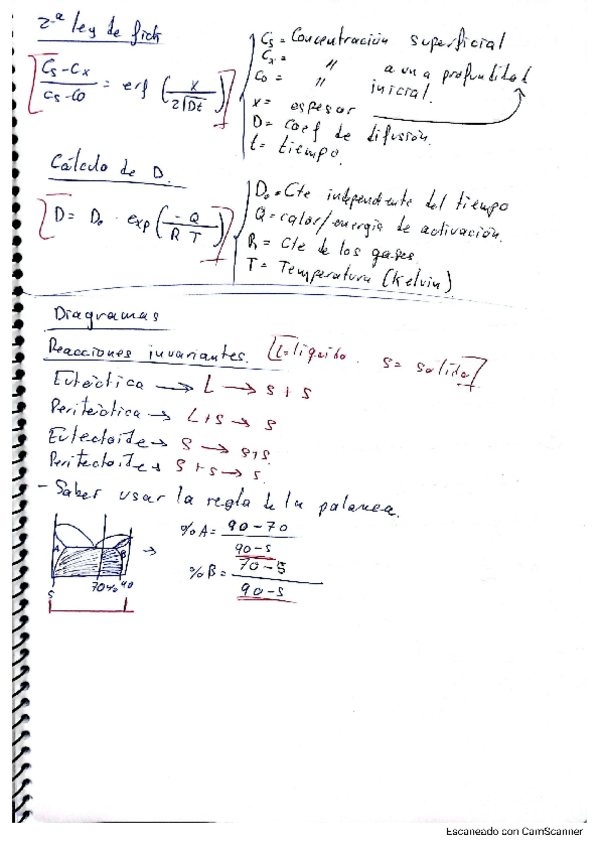 2ª ley de fick
Cs - Cx / Cs - Co = erf ( x / 2√Dt )
Cs = Concentración superficial
Cx = " a una profundidad
Co = " inicial.
x = espesor
D = coef de difusión.
t = tiempo.
Cálculo de D.
D = Do · exp ( -Q / R T )
Do = Cte independente del tiempo
Q = calor/energía de activación.
R = Cte de los gases
T = Temperatura (Kelvin)
Diagramas
Reacciones invariantes. L = líquido. S = solido
Eutéctica → L → S + S
Peritéctica → L + S → S
Eutectoide → S → S+S.
Peritectoide → S + S → S.
- Saber usar la regla de la palanca.
A B
5 70% 90
→
%A = 90 - 70 / 90 - 5
%B = 70 - 5 / 90 - 5
Escaneado con CamScanner